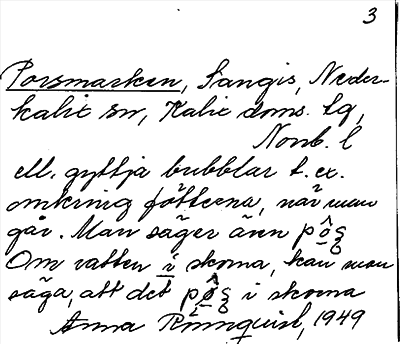 3
Porsmarken, Sangis, Neder-
kalix sn, Kalix doms. lg,
Norrb. l
ell. gyttja bubblar t. ex.
omkring fötterna, när man
går. Man säger även
Om vatten i skorna, kan man
säga, att det i skorna
Anna Rönnquist, 1949